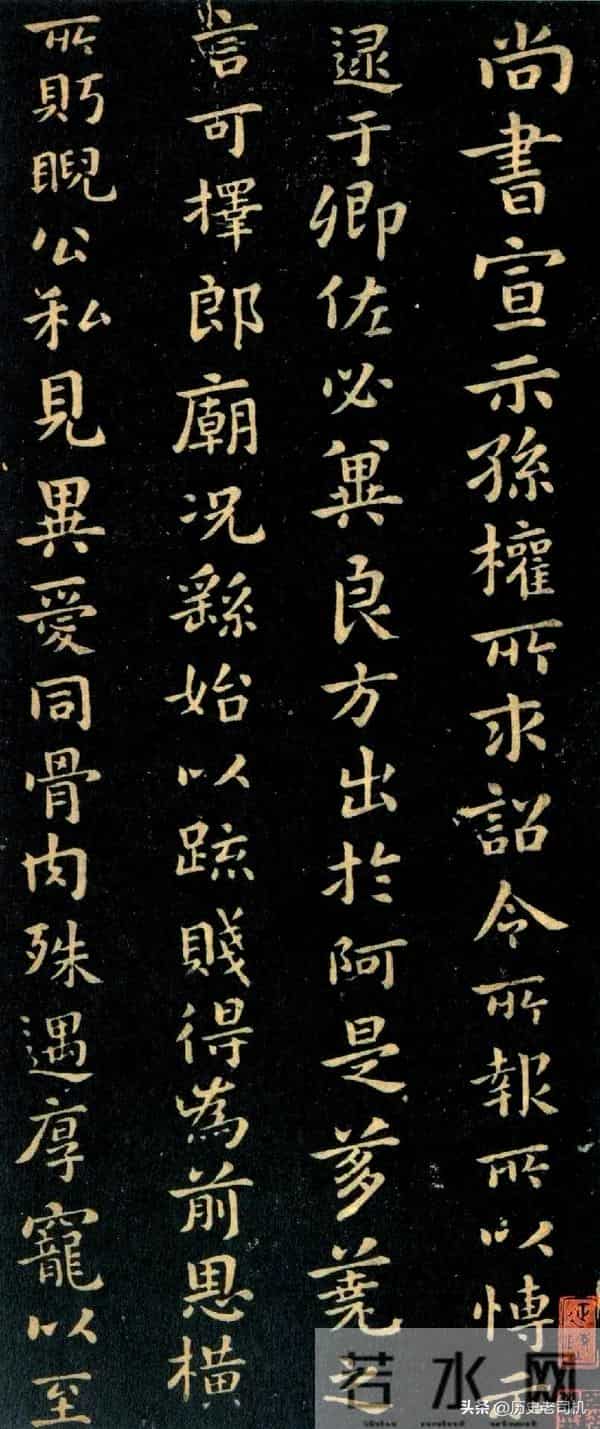 尚書宣示孫權所求詔令所報所以愽示
逮于卿佐必冀良方出於阿是芻蕘之
言可擇郎廟况繇始以疏賤得為前恩橫
所眄睨公私見異愛同骨肉殊遇厚寵以至
若水网
头条 @历史老司机